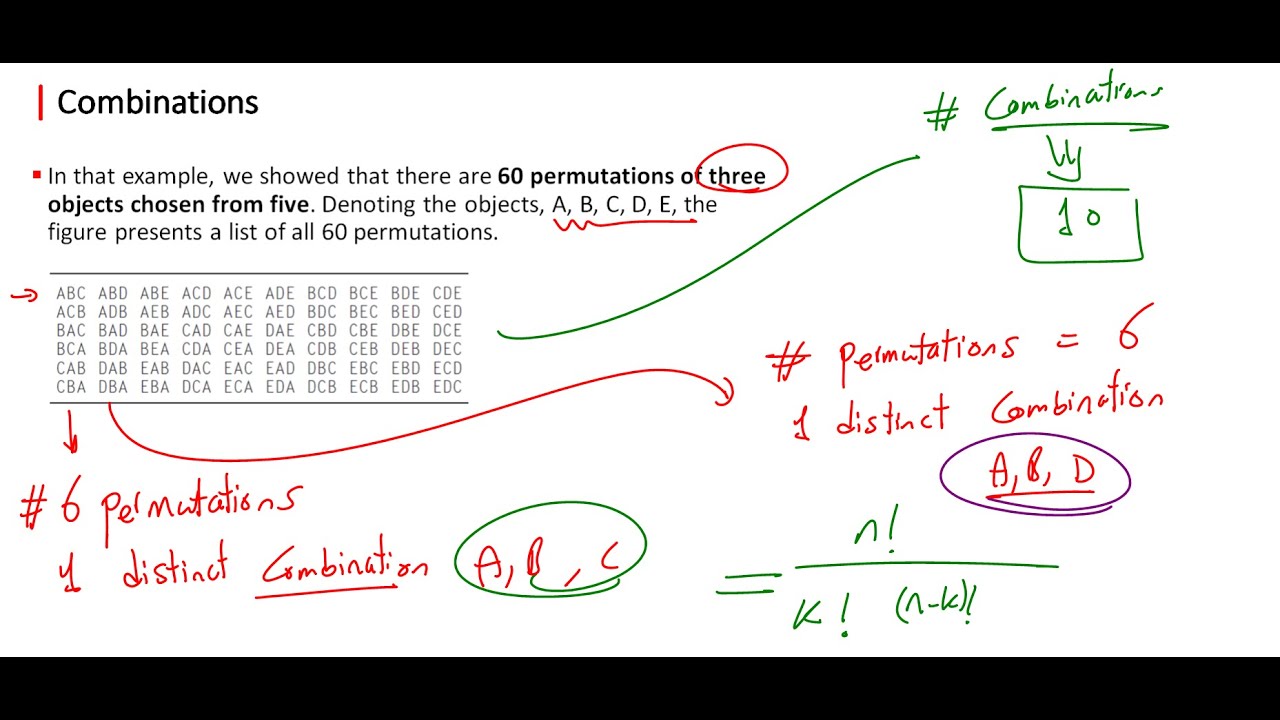 Combinations
In that example, we showed that there are 60 permutations of three
objects chosen from five. Denoting the objects, A, B, C, D, E, the
figure presents a list of all 60 permutations.
ABC ABD ABE ACD ACE ADE BCD BCE BDE CDE
ACB ADB AEB ADC AEC AED BDC BEC BED CED
BAC BAD BAE CAD CAE DAE CBD CBE DBE DCE
BCA BDA BEA CDA CEA DEA CDB CEB DEB DEC
CAB DAB EAB DAC EAC EAD DBC EBC EBD ECD
CBA DBA EBA DCA ECA EDA DCB ECB EDB EDC
# 6 permutations
1 distinct Combination A, B, C
# Combinations
10
# permutations = 6
1 distinct Combination
A, B, D
= n!
k! (n-k)!